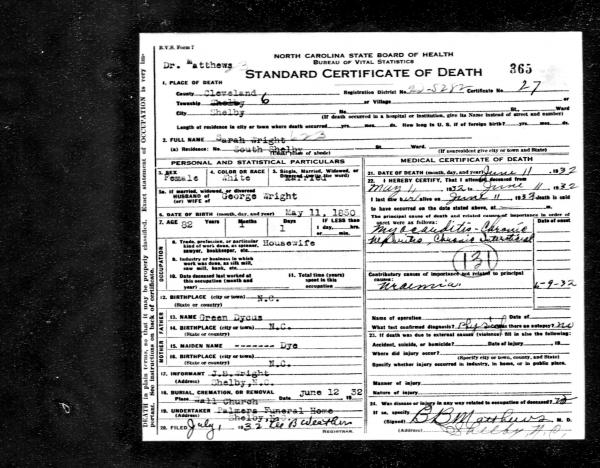 B.V.S. Form 7
Dr. Matthews
NORTH CAROLINA STATE BOARD OF HEALTH
BUREAU OF VITAL STATISTICS
STANDARD CERTIFICATE OF DEATH
365
1. PLACE OF DEATH
County Cleveland Registration District No. Certificate No. 27
Township Shelby 6 or Village or
City Shelby No. St. Ward
(If death occurred in a hospital or institution, give its Name instead of street and number)
Length of residence in city or town where death occurred yrs. mos. ds. How long in U. S. if of foreign birth? yrs. mos. ds.
2. FULL NAME Sarah Wright
(a) Residence: No. South Shelby St. Ward
(Usual place of abode) (If nonresident give city or town and State)
PERSONAL AND STATISTICAL PARTICULARS
3. SEX Female
4. COLOR OR RACE White
5. Single, Married, Widowed, or Divorced (write the word) Married
5a. If married, widowed, or divorced
HUSBAND of
(or) WIFE of George Wright
6. DATE OF BIRTH (month, day, and year) May 11, 1850
7. AGE Years 82 Months 1 Days 1 IF LESS than 1 day, hrs. or min.
OCCUPATION
8. Trade, profession, or particular kind of work done, as spinner, sawyer, bookkeeper, etc. Housewife
9. Industry or business in which work was done, as silk mill, saw mill, bank, etc.
10. Date deceased last worked at this occupation (month and year)
11. Total time (years) spent in this occupation
12. BIRTHPLACE (city or town) N.C.
(State or country)
FATHER
13. NAME Green Dycus
14. BIRTHPLACE (city or town) N.C.
(State or country)
MOTHER
15. MAIDEN NAME ------- Dye
16. BIRTHPLACE (city or town)
(State or country) N.C.
17. INFORMANT J.B. Wright
(Address) Shelby, N.C.
18. BURIAL, CREMATION, OR REMOVAL
Place Church Date June 12 32
19. UNDERTAKER Palmers Funeral Home
(Address) Shelby,
20. FILED July 1, 1932 Lee B Weathers
REGISTRAR.
MEDICAL CERTIFICATE OF DEATH
21. DATE OF DEATH (month, day, and year) June 11 1932
22. I HEREBY CERTIFY, That I attended deceased from
May 1, 1932 to June 11 1932
I last saw her alive on June 11 1932 death is said
to have occurred on the date stated above, at m.
The principal cause of death and related causes of importance in order of onset were as follows: Date of onset
Myocarditis - Chronic
Nephritis, Chronic Interstitial
(131)
Contributory causes of importance not related to principal cause:
Uraemia 6-9-32
Name of operation Date of
What test confirmed diagnosis? Physical Was there an autopsy? no
23. If death was due to external causes (violence) fill in also the following:
Accident, suicide, or homicide? Date of injury 19
Where did injury occur?
(Specify city or town, county, and State)
Specify whether injury occurred in industry, in home, or in public place.
Manner of injury
Nature of injury
24. Was disease or injury in any way related to occupation of deceased? no
If so, specify
(Signed) B B Matthews M. D.
(Address) Shelby N.C.